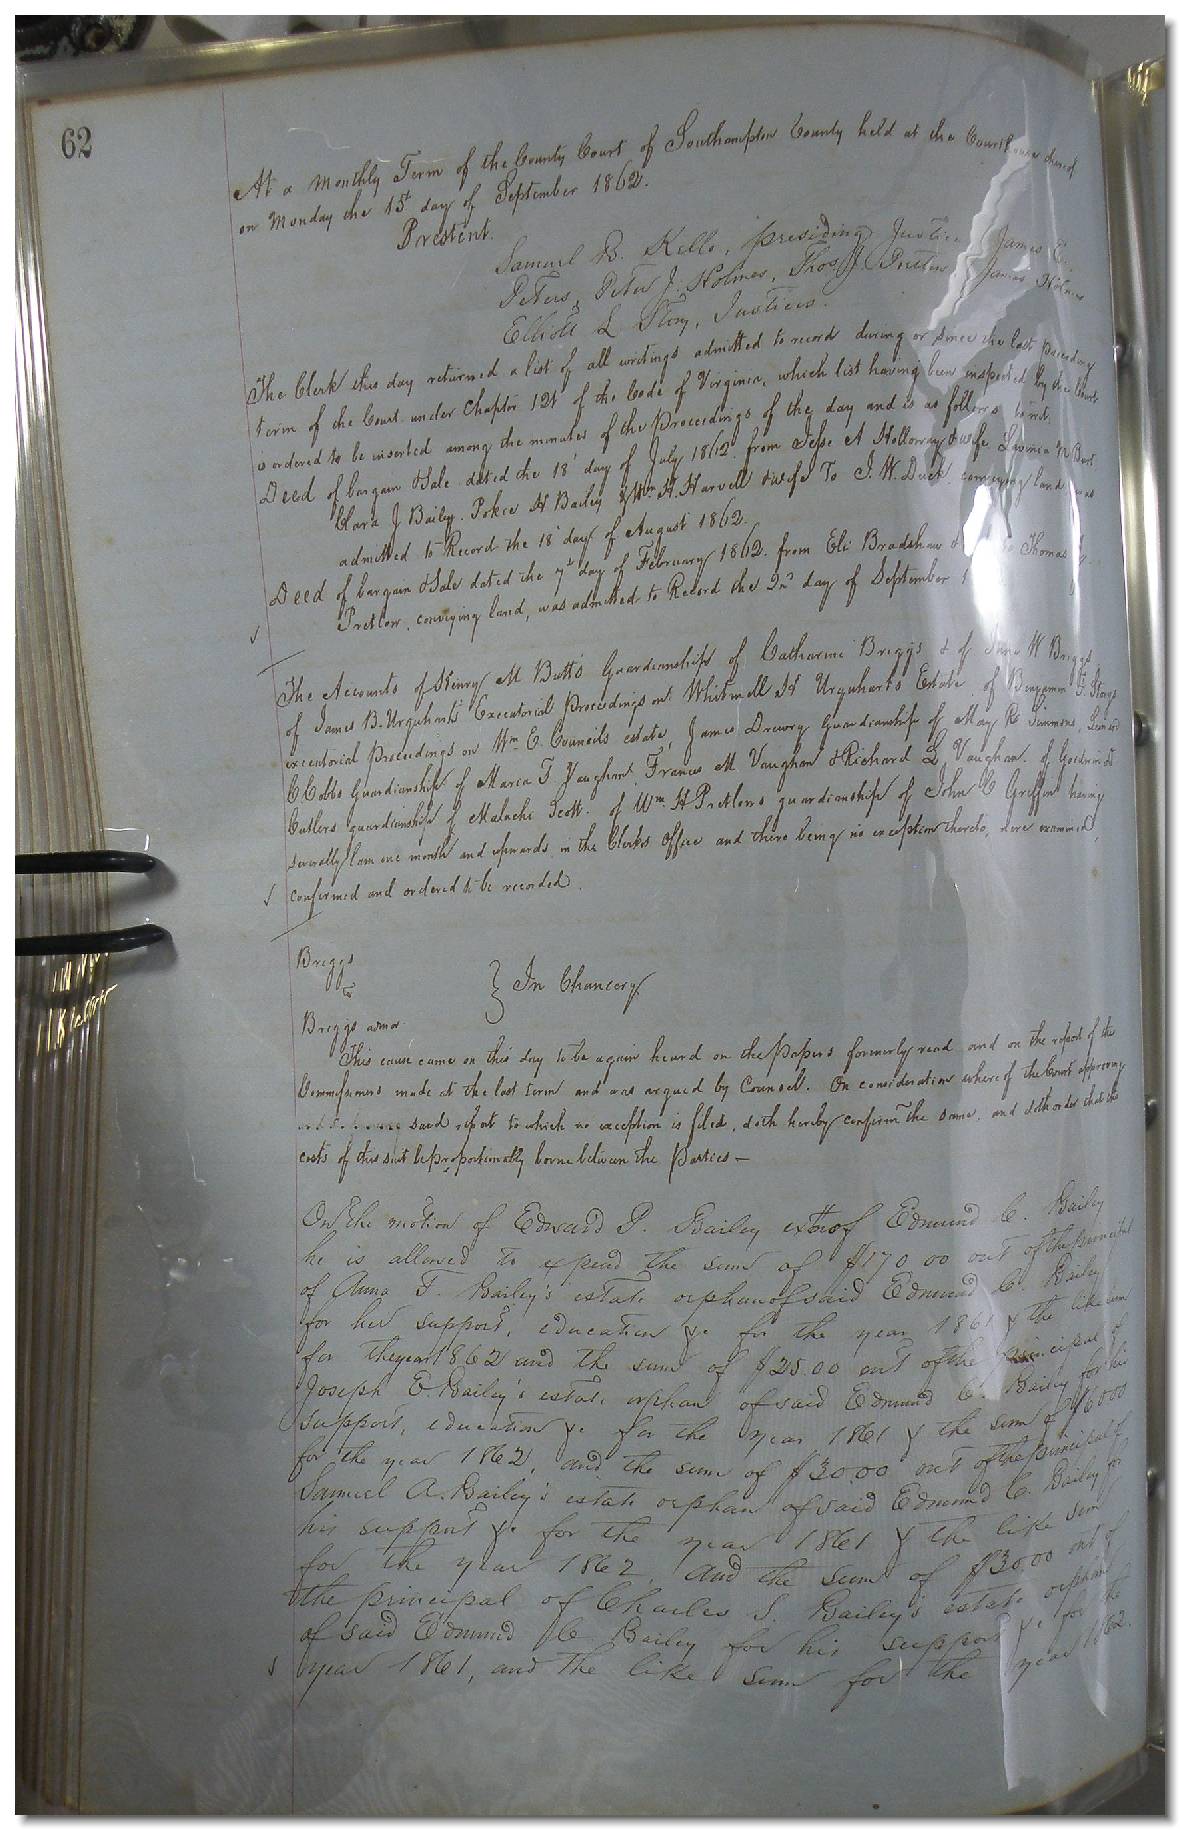 62
At a Monthly Term of the County Court of Southampton County held at the Courthouse thereof
on Monday the 15th day of September 1862.
Present.
Samuel B. Kello, presiding Justice, James E.
Peters, Peter J. Holmes, Thos J. Pretlow, James Holmes
Elliott L Story, Justices.
The Clerk this day returned a list of all writings admitted to record during or since the last preceding
term of the Court under Chapter 121 of the Code of Virginia, which list having been inspected by the Court
is ordered to be inserted among the minutes of the Proceedings of the day and is as follows to wit.
Deed of bargain & Sale dated the 18th day of July 1862 from Jesse A Holloway & wife Lavinia M
Clara J Bailey. H Bailey & Wm H. Harvell & wife To J. W. Duck, conveying land, was
admitted to Record the 18th day of August 1862.
Deed of bargain & Sale dated the 7th day of February 1862. from Eli Bradshaw & Thomas
Pretlow, conveying land, was admitted to Record the 2nd day of September
The Accounts of Henry M Butts Guardianship of Catharine Briggs & of Jno W Briggs
of James B. Urquharts Executorial Proceedings on Whitmell H Urquharts Estate, of Benjamin F. Storys
executorial proceedings on Wm E. Councils estate, James Drewry Guardianship of May R Simmons,
C Cobbs Guardianship of Maria T Vaughan, Frances M Vaughan & Richard L Vaughan. of
Cutlers guardianship of Malachi Scott. of Wm H Pretlows guardianship of John C Griffin having
severally lain one month and upwards in the Clerks Office and there being no exception thereto, were examined,
confirmed and ordered to be recorded.
Briggs
vs } In Chancery
Briggs admor
This cause came on this day to be again heard on the Papers formerly read and on the report of the
Commissioners made at the last term and was argued by Counsel. On consideration whereof the Court approving
said report to which no exception is filed, doth hereby confirm the same, and doth order that the
costs of this suit be proportionably borne between the Parties —
On the motion of Edward P. Bailey exor of Edmund C. Bailey
he is allowed to expend the sum of $170 00 out of the principal
of Anna F. Bailey's estate orphan of said Edmund C. Bailey
for her support, education &c for the year 1861 & the like sum
for the year 1862 and the sum of $25.00 out of the principal of
Joseph E. Bailey's estate, orphan of said Edmund C. Bailey for his
support, education &c. for the year 1861 & the sum of $60 00
for the year 1862, and the sum of $30.00 out of the principal of
Samuel A. Bailey's estate orphan of said Edmund C. Bailey for
his support &c for the year 1861 & the like sum
for the year 1862, and the sum of $30.00 out of
the principal of Charles S. Bailey's estate orphan
of said Edmund C. Bailey for his support &c. for the
year 1861, and the like sum for the year 1862.